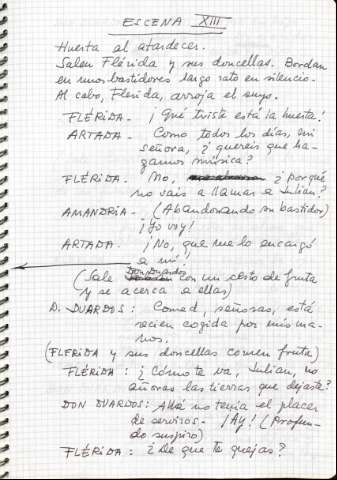 ESCENA XIII
Huerta al atardecer.
Salen Flérida y sus doncellas. Bordan
en unos bastidores largo rato en silencio.
Al cabo, Flerida, arroja el suyo.
FLÉRIDA.- ¡Qué triste está la huerta!
ARTADA.- Como todos los días, mi
señora, ¿quereis que ha-
gamos música?
FLÉRIDA.- No, ¿porqué
no vais a llamar a Julian?
AMANDRIA.- (Abandonando su bastidor)
¡Yo voy!
ARTADA.- ¡No, que me lo encargó
a mí!
Don Duardos
(Sale con un cesto de fruta
y se acerca a ellas)
D. DUARDOS: Comed, señoras, está
recien cogida por mis ma-
nos.
(FLERIDA y sus doncellas comen fruta)
FLÉRIDA: ¿Cómo te va, Julian, no
añoras las tierras que dejaste?
DON DUARDOS: Allá no tenía el placer
de serviros.- ¡Ay! (Profun-
do suspiro)
FLÉRIDA: ¿De que te quejas?